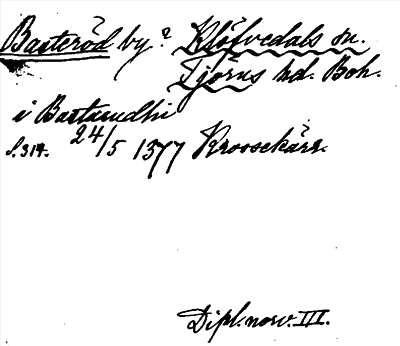 Basteröd by? Klöfvedals sn.
Tjörns hd. Boh.
i Bastarudhi
S. 314. 24/5 1377 Kroosekärr.
Dipl. norv. III.